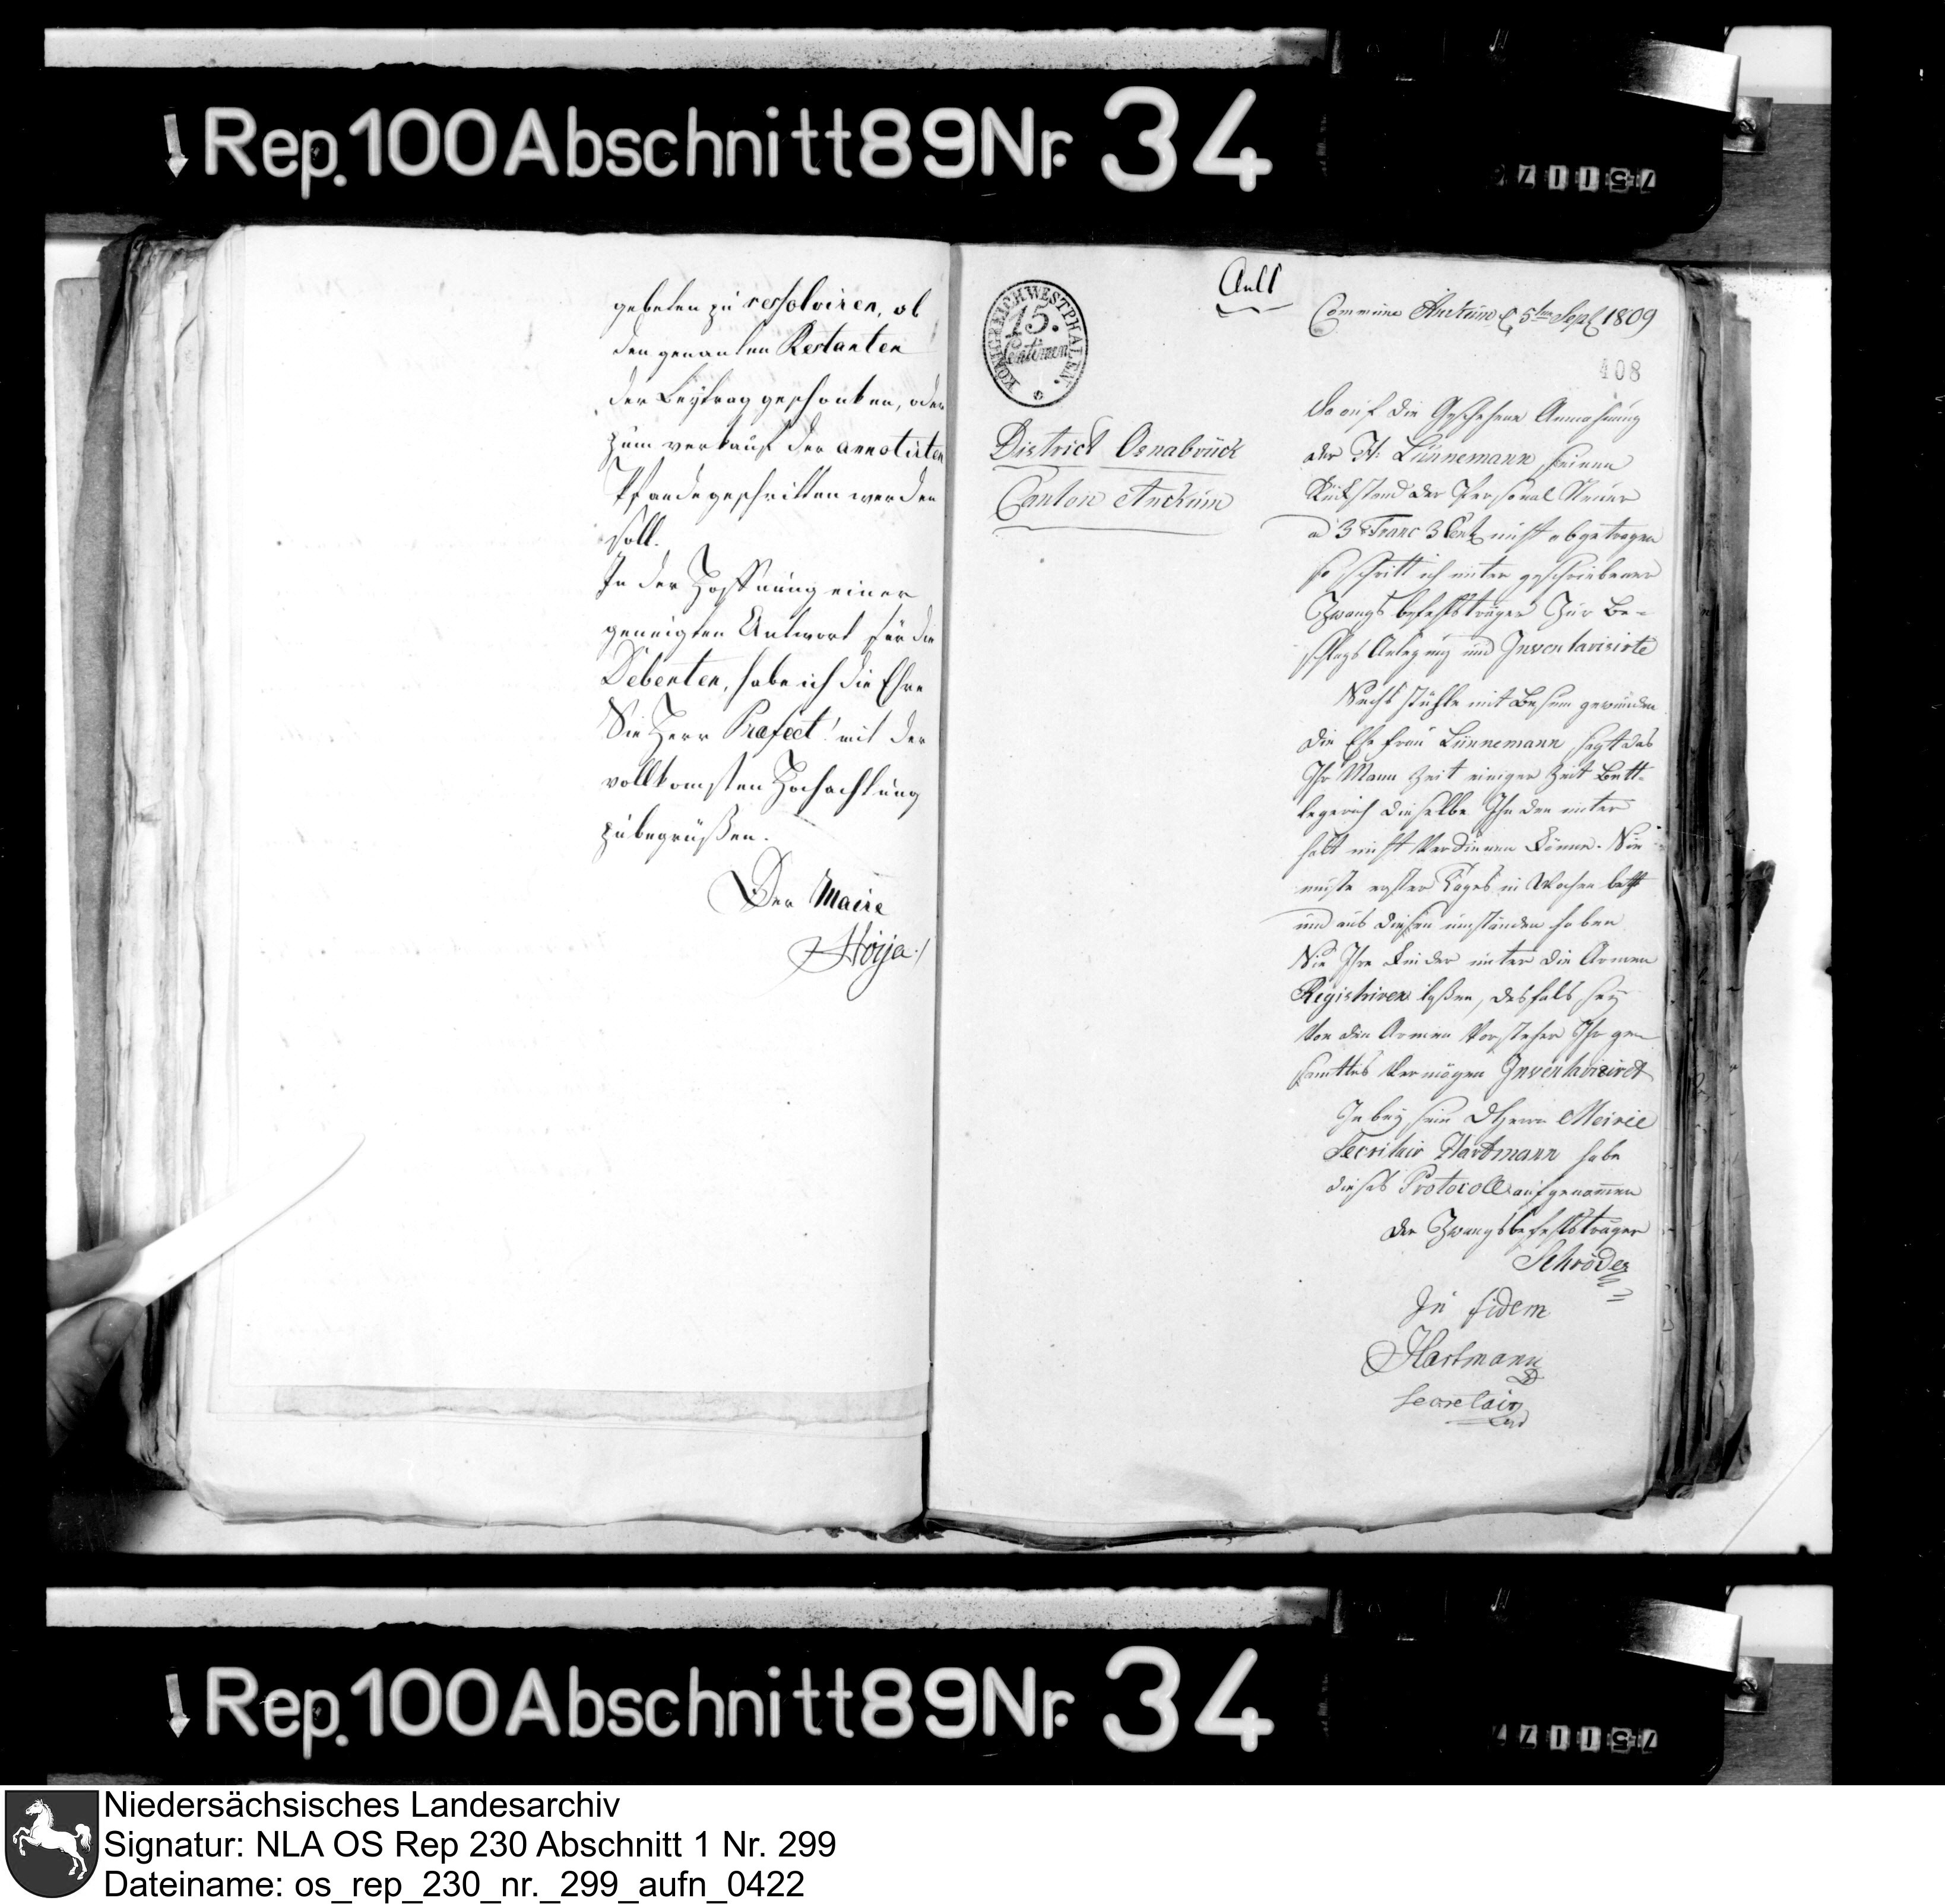 Rep. 100 Abschnitt 89 Nr. 34
gebeten zu resolviren, ob
den genanten Restanten
der Beytrag geschonken, oder
zum verkauf der annotirten
Pfande geschritten werden
soll.
In der Hoffnung einer
geneigten Antwort für die
Debenten, habe ich die Ehre
Sie Herr Präfect! mit der
vollkomsten Hochachtung
zu begrüßen.
Der Maire
KÖNIGREICH WESTPHALEN.
15.
Centimen
District Osnabrück
Canton Anckum
Commune Anckum 5ten Sept 1809
408
Da auf die Geschehene Anmahnung
der H: Lünnemann seinen
Rückstand der Personal Steuer
a 3 Franc 3 Cent nicht abgetragen
so schritt ich unter geschriebener
Zwangs befehlsträger Zur Be-
schlags Anlegung und Inventarisirte
Sechs stühle mit Besem gewunden
die Ehe frau Lünnemann sagt das
Ihr Mann Zeit einiger Zeit Bett-
legerich dieselbe Ihr den unter
halt nicht Verdienen könne. Sie
müste erster Tages in Wochen bette
und aus diesen umständen haben
Sie Ihre Kinder unter die Armen
Registriren laßen, desfals sey
Von den Armen Vorsteher Ihr ge-
samttes Vermögen Inventarisirt
In bey sein d Herrn Meirie
Secritair Hartmann habe
dieses Protocoll aufgenommen
der Zwangsbefehlsträger
Schröder
In fidem
Hartmann
Secretair
Rep. 100 Abschnitt 89 Nr. 34
Niedersächsisches Landesarchiv
Signatur: NLA OS Rep 230 Abschnitt 1 Nr. 299
Dateiname: os_rep_230_nr._299_aufn_0422